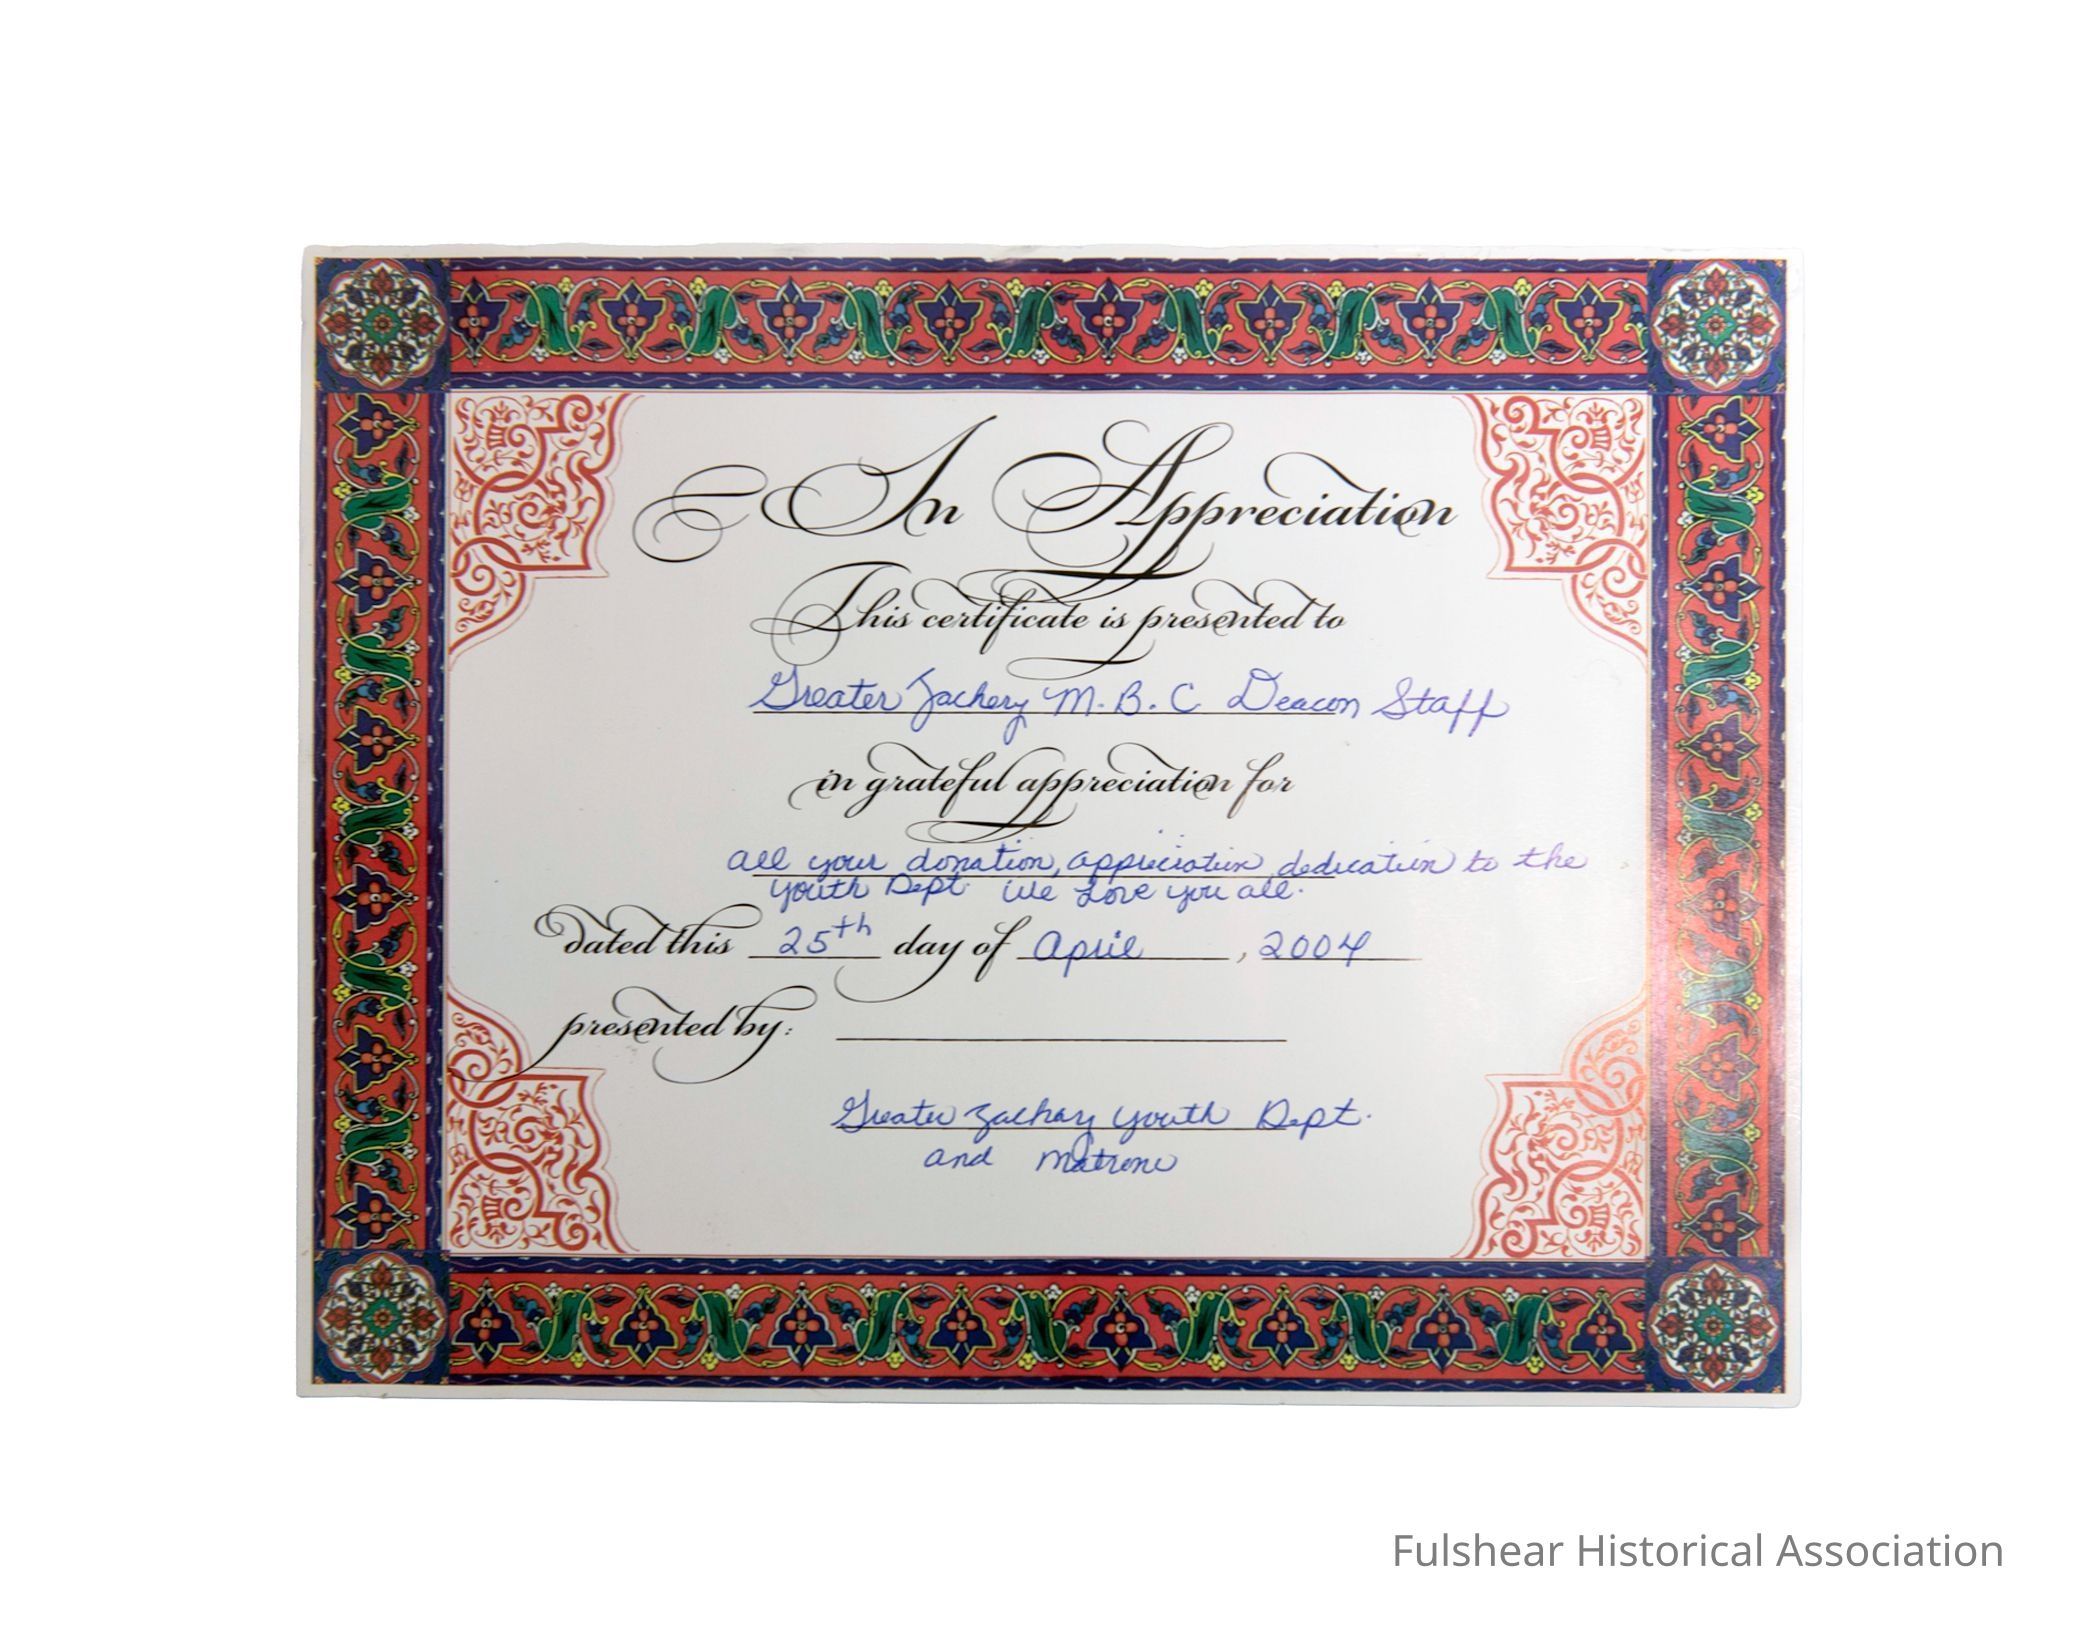 In Appreciation
This certificate is presented to
Greater Zachery M.B.C Deacon Staff
in grateful appreciation for
all your donation, appreciation, dedication to the
Youth Dept. We Love you all.
dated this 25th day of April, 2004
presented by:
Greater Zachary Youth Dept.
and
Fulshear Historical Association